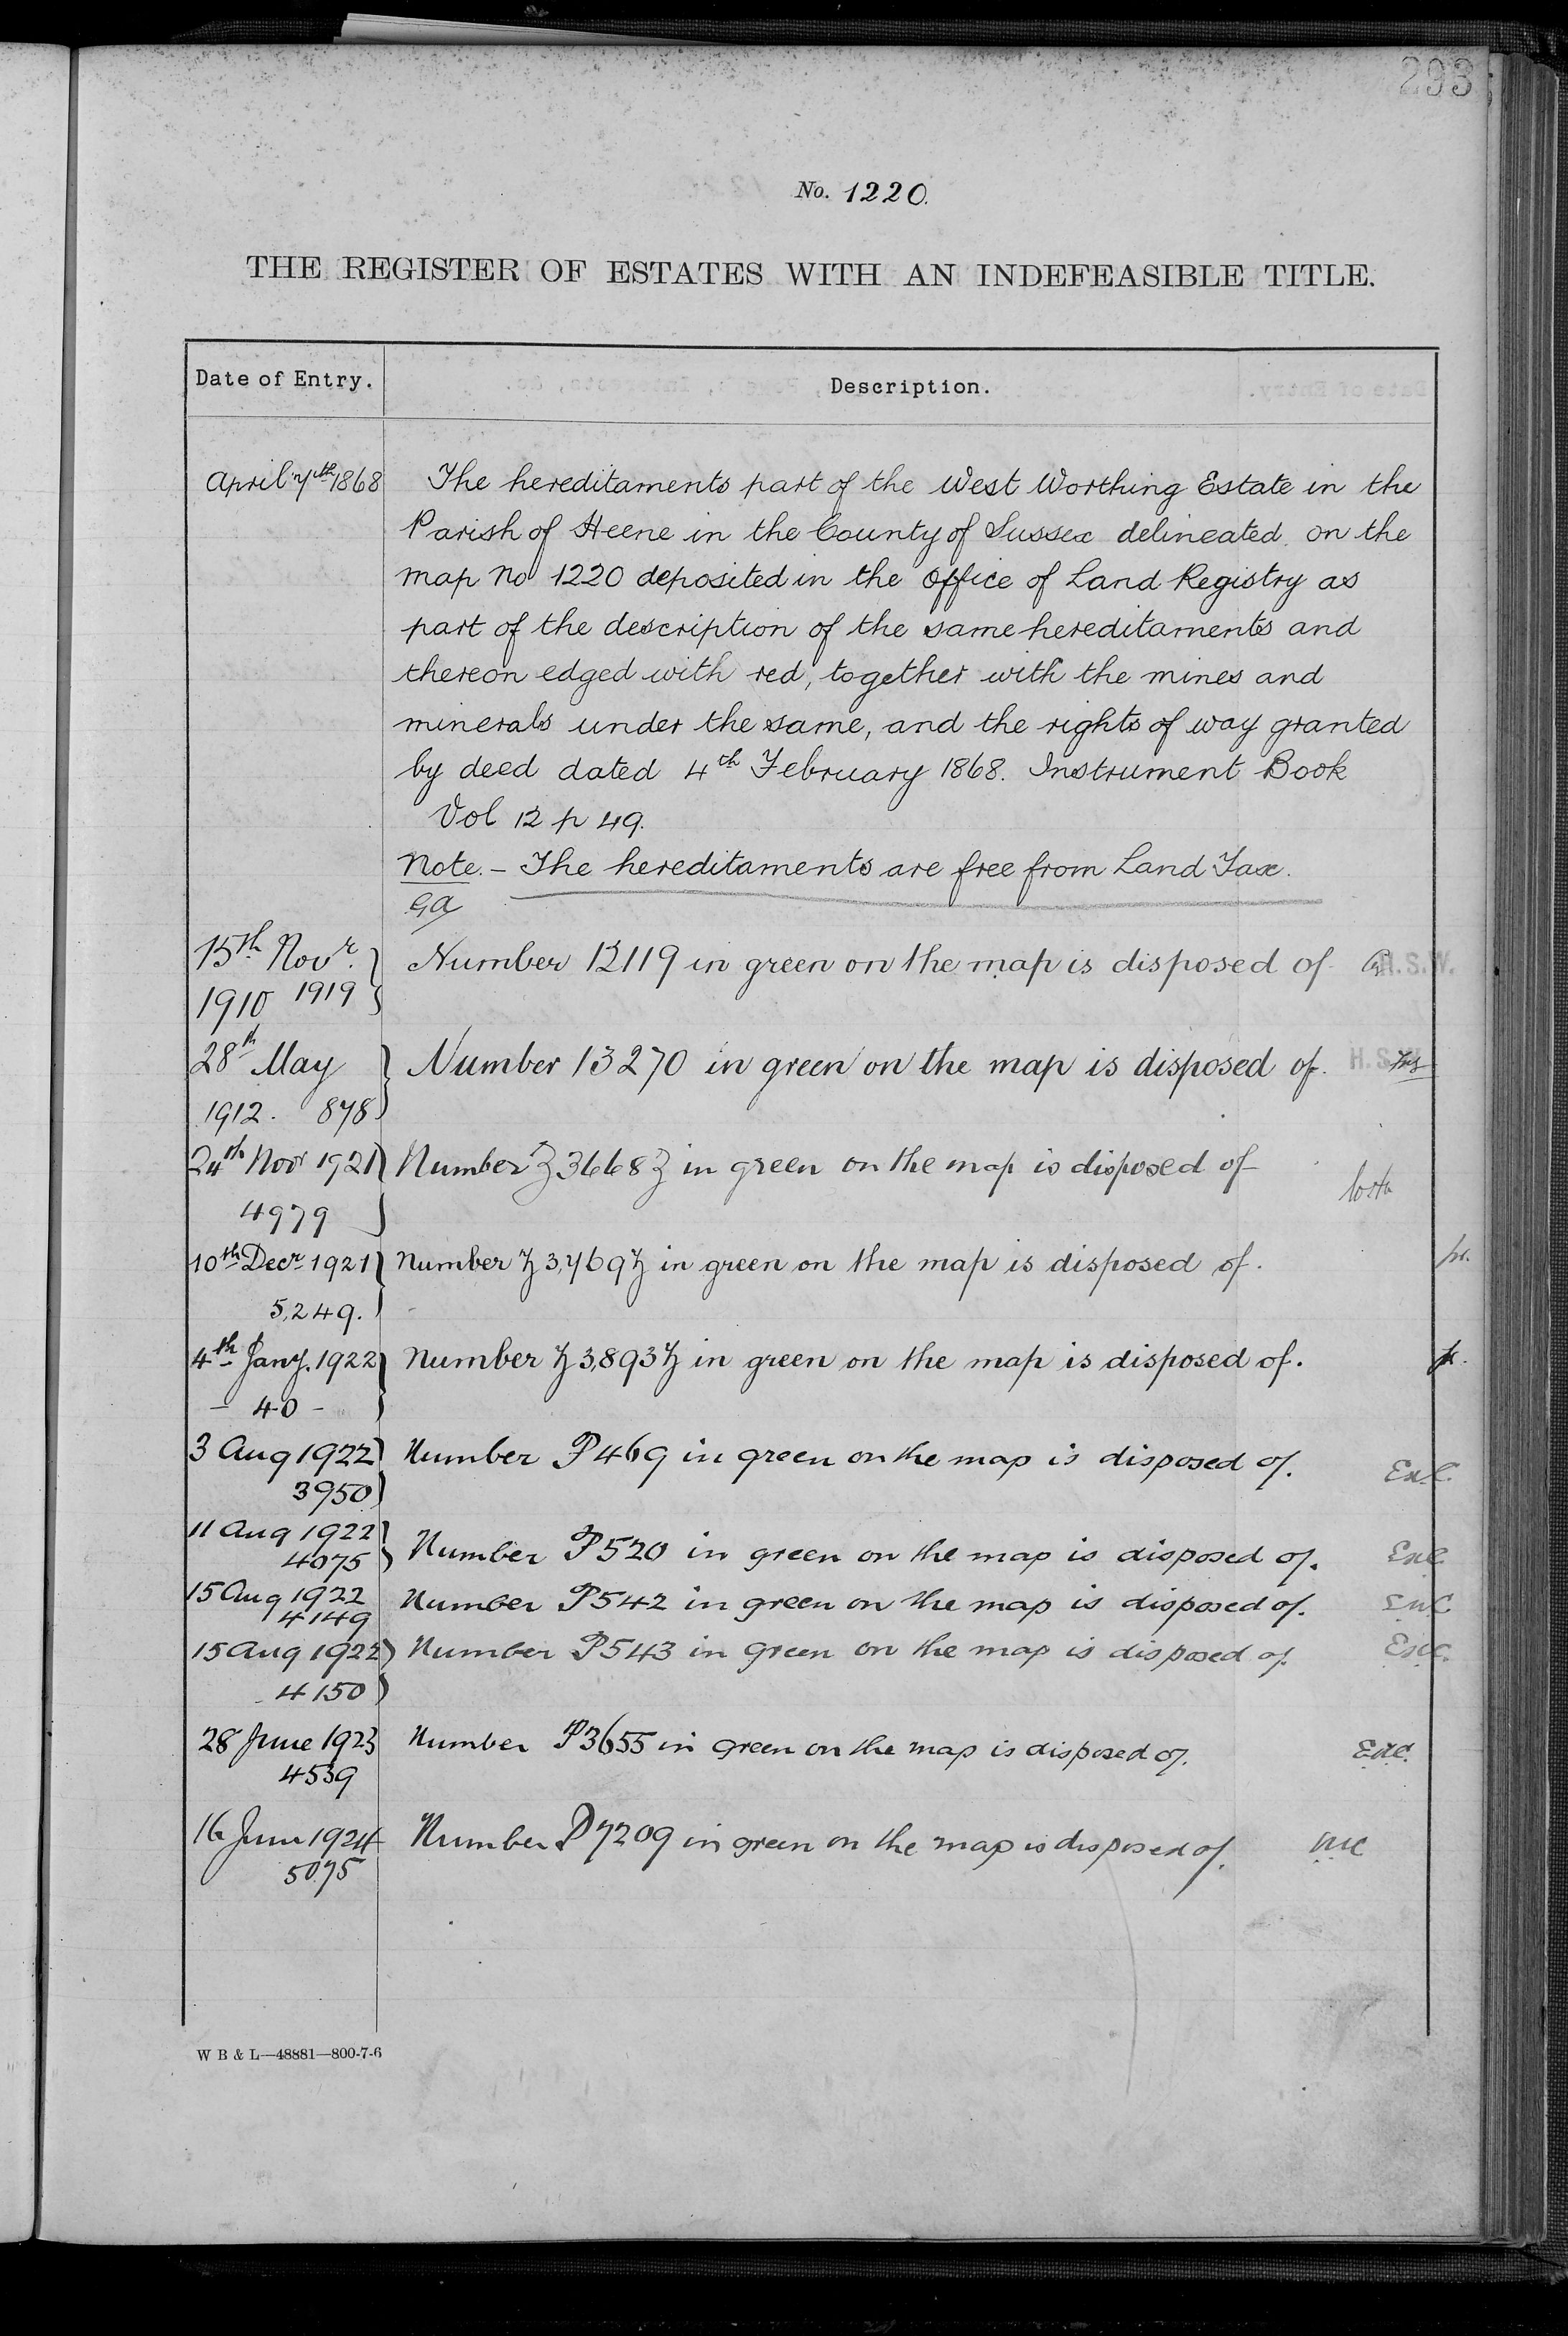 293
No. 1220.
THE REGISTER OF ESTATES WITH AN INDEFEASIBLE TITLE.
Date of Entry.
Description.
April 7th 1868
The hereditaments part of the West Worthing Estate in the
Parish of Heene in the County of Sussex delineated on the
map No 1220 deposited in the Office of Land Registry as
part of the description of the same hereditaments and
thereon edged with red, together with the mines and
minerals under the same, and the rights of way granted
by deed dated 4th February 1868. Instrument Book
Vol 12 p 49.
Note. - The hereditaments are free from Land Tax.
GA
15th Novr.
1910 1919
Number 12119 in green on the map is disposed of. H.S.W.
28th May
1912. 878
Number 13270 in green on the map is disposed of. H.S.W.
24th Novr 1921
4979
Number Z 3668 Z in green on the map is disposed of
10th Decr 1921
5,249.
Number Z 3,769 Z in green on the map is disposed of.
4th Jany. 1922
- 40 -
Number Z 3,893 Z in green on the map is disposed of.
3 Aug 1922
3950
Number P469 in green on the map is disposed of.
11 Aug 1922
4075
Number P520 in green on the map is disposed of.
15 Aug 1922
4149
Number P542 in green on the map is disposed of.
15 Aug 1922
4150
Number P543 in green on the map is disposed of.
28 June 1923
4539
Number P3655 in green on the map is disposed of.
16 June 1924
5075
Number P7209 in green on the map is disposed of.
W B & L—48881—800-7-6